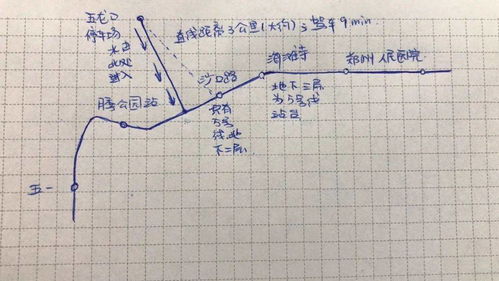 五龙口
停车场
水由
此处
进入
直线距离3公里(大约);驾车9min
月季公园站
沙口路
只有
5号
线,地
下二层
海滩寺
地下三层
为5号线
站台
郑州人民医院
五一